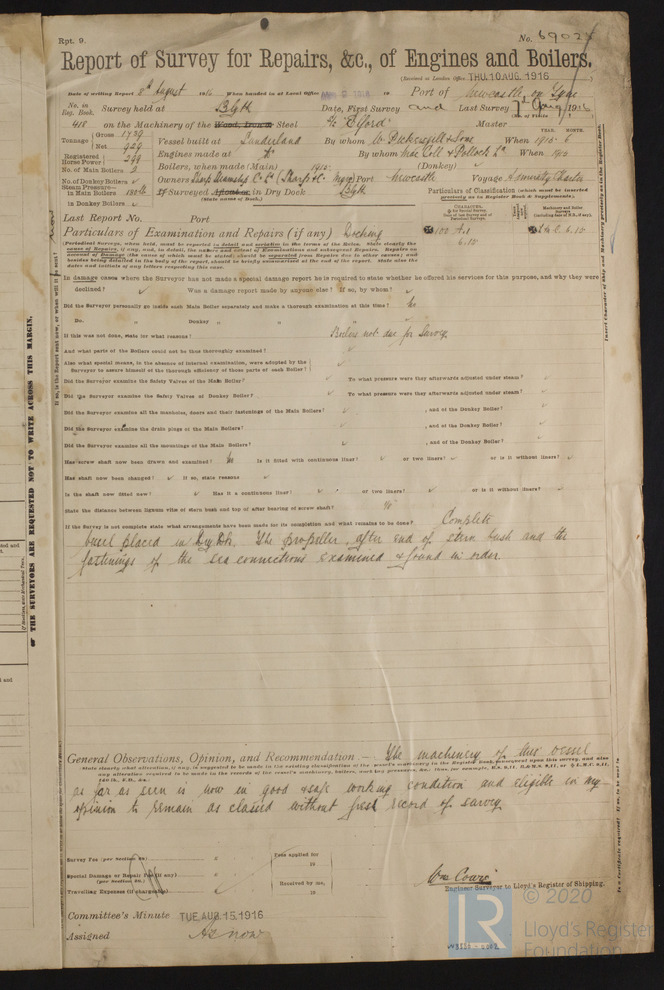 Rpt. 9.
No. 6902
Report of Survey for Repairs, &c., of Engines and Boilers.
(Received at London Office THU. 10 AUG. 1916 )
Date of writing Report 8th August 1916 When handed in at Local Office 19 Port of Newcastle on Tyne
No. in Reg. Book. Survey held at Blyth Date, First Survey and Last Survey 7th Aug 1916
418 on the Machinery of the Wood, Iron or Steel S/S "Elford" Master
Tonnage Gross 1739 Net 929 Vessel built at Sunderland By whom W. Pickersgill & Sons When 1915-6
Registered Horse Power 299 Engines made at Do By whom MacColl & Pollock Ld When 1915
No. of Main Boilers 2 Boilers, when made (Main) 1915 (Donkey) ✓
No. of Donkey Boilers ✓ Owners Sharp Steamship Co. Ld (Sharp & Co. Mgrs) Port Newcastle Voyage Admiralty Charter
Steam Pressure in Main Boilers 180 lb If Surveyed Afloat or in Dry Dock Blyth
(State name of Dock.)
in Donkey Boilers ✓
Particulars of Classification (which must be inserted precisely as in Register Book & Supplement).
Last Report No. Port
✠ 100 A1 6.15 ✠ LMC 6.15
Particulars of Examination and Repairs (if any) Docking
In damage cases where the Surveyor has not made a special damage report he is required to state whether he offered his services for this purpose, and why they were
declined? ✓ Was a damage report made by anyone else? If so, by whom? ✓
Did the Surveyor personally go inside each Main Boiler separately and make a thorough examination at this time? No
Do. " Donkey " " "
If this was not done, state for what reasons? Boilers not due for survey
And what parts of the Boilers could not be thus thoroughly examined? ✓
Also what special means, in the absence of internal examination, were adopted by the
Surveyor to assure himself of the thorough efficiency of those parts of each Boiler? ✓
Did the Surveyor examine the Safety Valves of the Main Boiler? ✓ To what pressure were they afterwards adjusted under steam? ✓
Did the Surveyor examine the Safety Valves of Donkey Boiler? ✓ To what pressure were they afterwards adjusted under steam? ✓
Did the Surveyor examine all the manholes, doors and their fastenings of the Main Boilers? ✓ , and of the Donkey Boiler? ✓
Did the Surveyor examine the drain plugs of the Main Boilers? ✓ , and of the Donkey Boiler? ✓
Did the Surveyor examine all the mountings of the Main Boilers? ✓ , and of the Donkey Boiler? ✓
Has screw shaft now been drawn and examined? No Is it fitted with continuous liner? ✓ or two liners? ✓ or is it without liners? ✓
Has shaft now been changed? ✓ If so, state reasons ✓
Is the shaft now fitted new? ✓ Has it a continuous liner? ✓ or two liners? ✓ or is it without liners? ✓
State the distance between lignum vitæ of stern bush and top of after bearing of screw shaft?
If the Survey is not complete state what arrangements have been made for its completion and what remains to be done? Complete
Vessel placed in Dry Dock. The propeller, after end of stern bush and the
fastenings of the sea connections examined & found in order
General Observations, Opinion, and Recommendation:— The machinery of this vessel
as far as seen is now in good & safe working condition and eligible in my
opinion to remain as classed without fresh record of survey
Survey Fee (per Section 29)
Fees applied for
19
Special Damage or Repair Fee (if any)
(per Section 29)
Received by me,
19
Travelling Expenses (if chargeable)
Wm Cowie
Engineer Surveyor to Lloyd's Register of Shipping.
Committee's Minute TUE. AUG. 15. 1916
Assigned As now
OF THE SURVEYORS ARE REQUESTED NOT TO WRITE ACROSS THIS MARGIN.
LR
© 2020
Lloyd's Register
Foundation